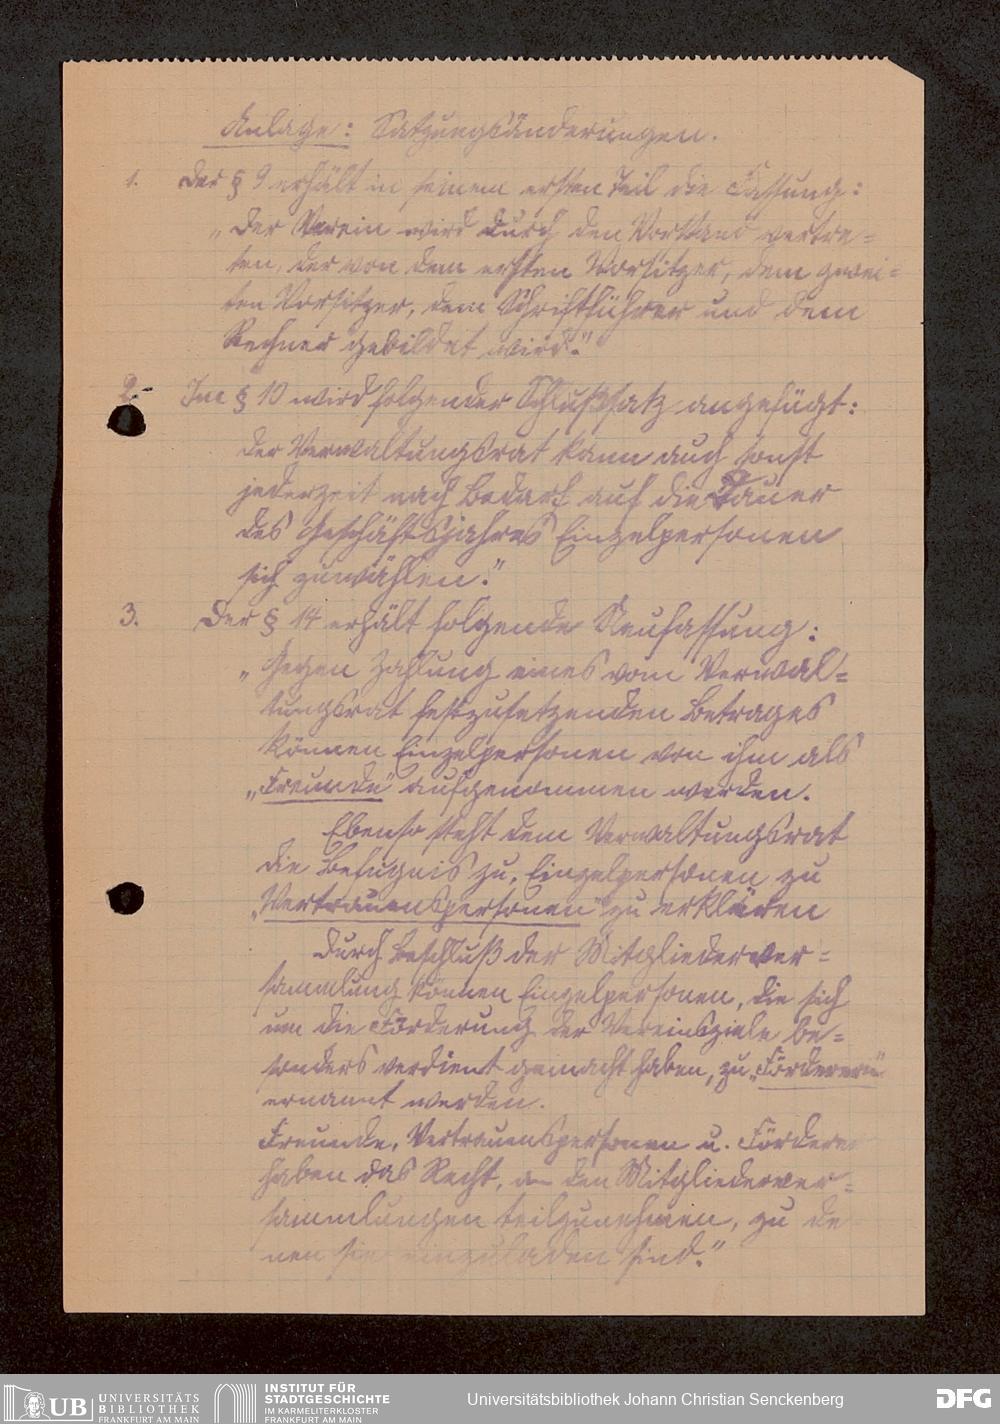 Anlage: Satzungsänderungen.
1. Der § 9 erhält in seinem ersten Teil die Fassung:
„Der Verein wird durch den Vorstand vertre=
ten, der von dem ersten Vorsitzer, dem zwei=
ten Vorsitzer, dem Schriftführer und dem
Rechner gebildet wird."
2. Im § 10 wird folgender Schlußsatz angefügt:
Der Verwaltungsrat kann auch sonst
jederzeit nach Bedarf auf die Dauer
des Geschäftsjahres Einzelpersonen
sich zuwählen."
3. Der § 14 erhält folgende Neufassung:
„Gegen Zahlung eines vom Verwal=
tungsrat festzusetzenden Betrages
können Einzelpersonen von ihm als
„Freunde" aufgenommen werden.
Ebenso steht dem Verwaltungsrat
die Befugnis zu, Einzelpersonen zu
„Vertrauenspersonen" zu erklären
Durch Beschluß der Mitgliederver=
sammlung können Einzelpersonen, die sich
um die Förderung der Vereinsziele be=
sonders verdient gemacht haben, zu „Förderern"
ernannt werden.
Freunde, Vertrauenspersonen u. Förderer
haben das Recht, an den Mitgliederver=
sammlungen teilzunehmen, zu de
nen sie einzuladen sind."
UB UNIVERSITÄTS
BIBLIOTHEK
FRANKFURT AM MAIN
INSTITUT FÜR
STADTGESCHICHTE
IM KARMELITERKLOSTER
FRANKFURT AM MAIN
Universitätsbibliothek Johann Christian Senckenberg
DFG